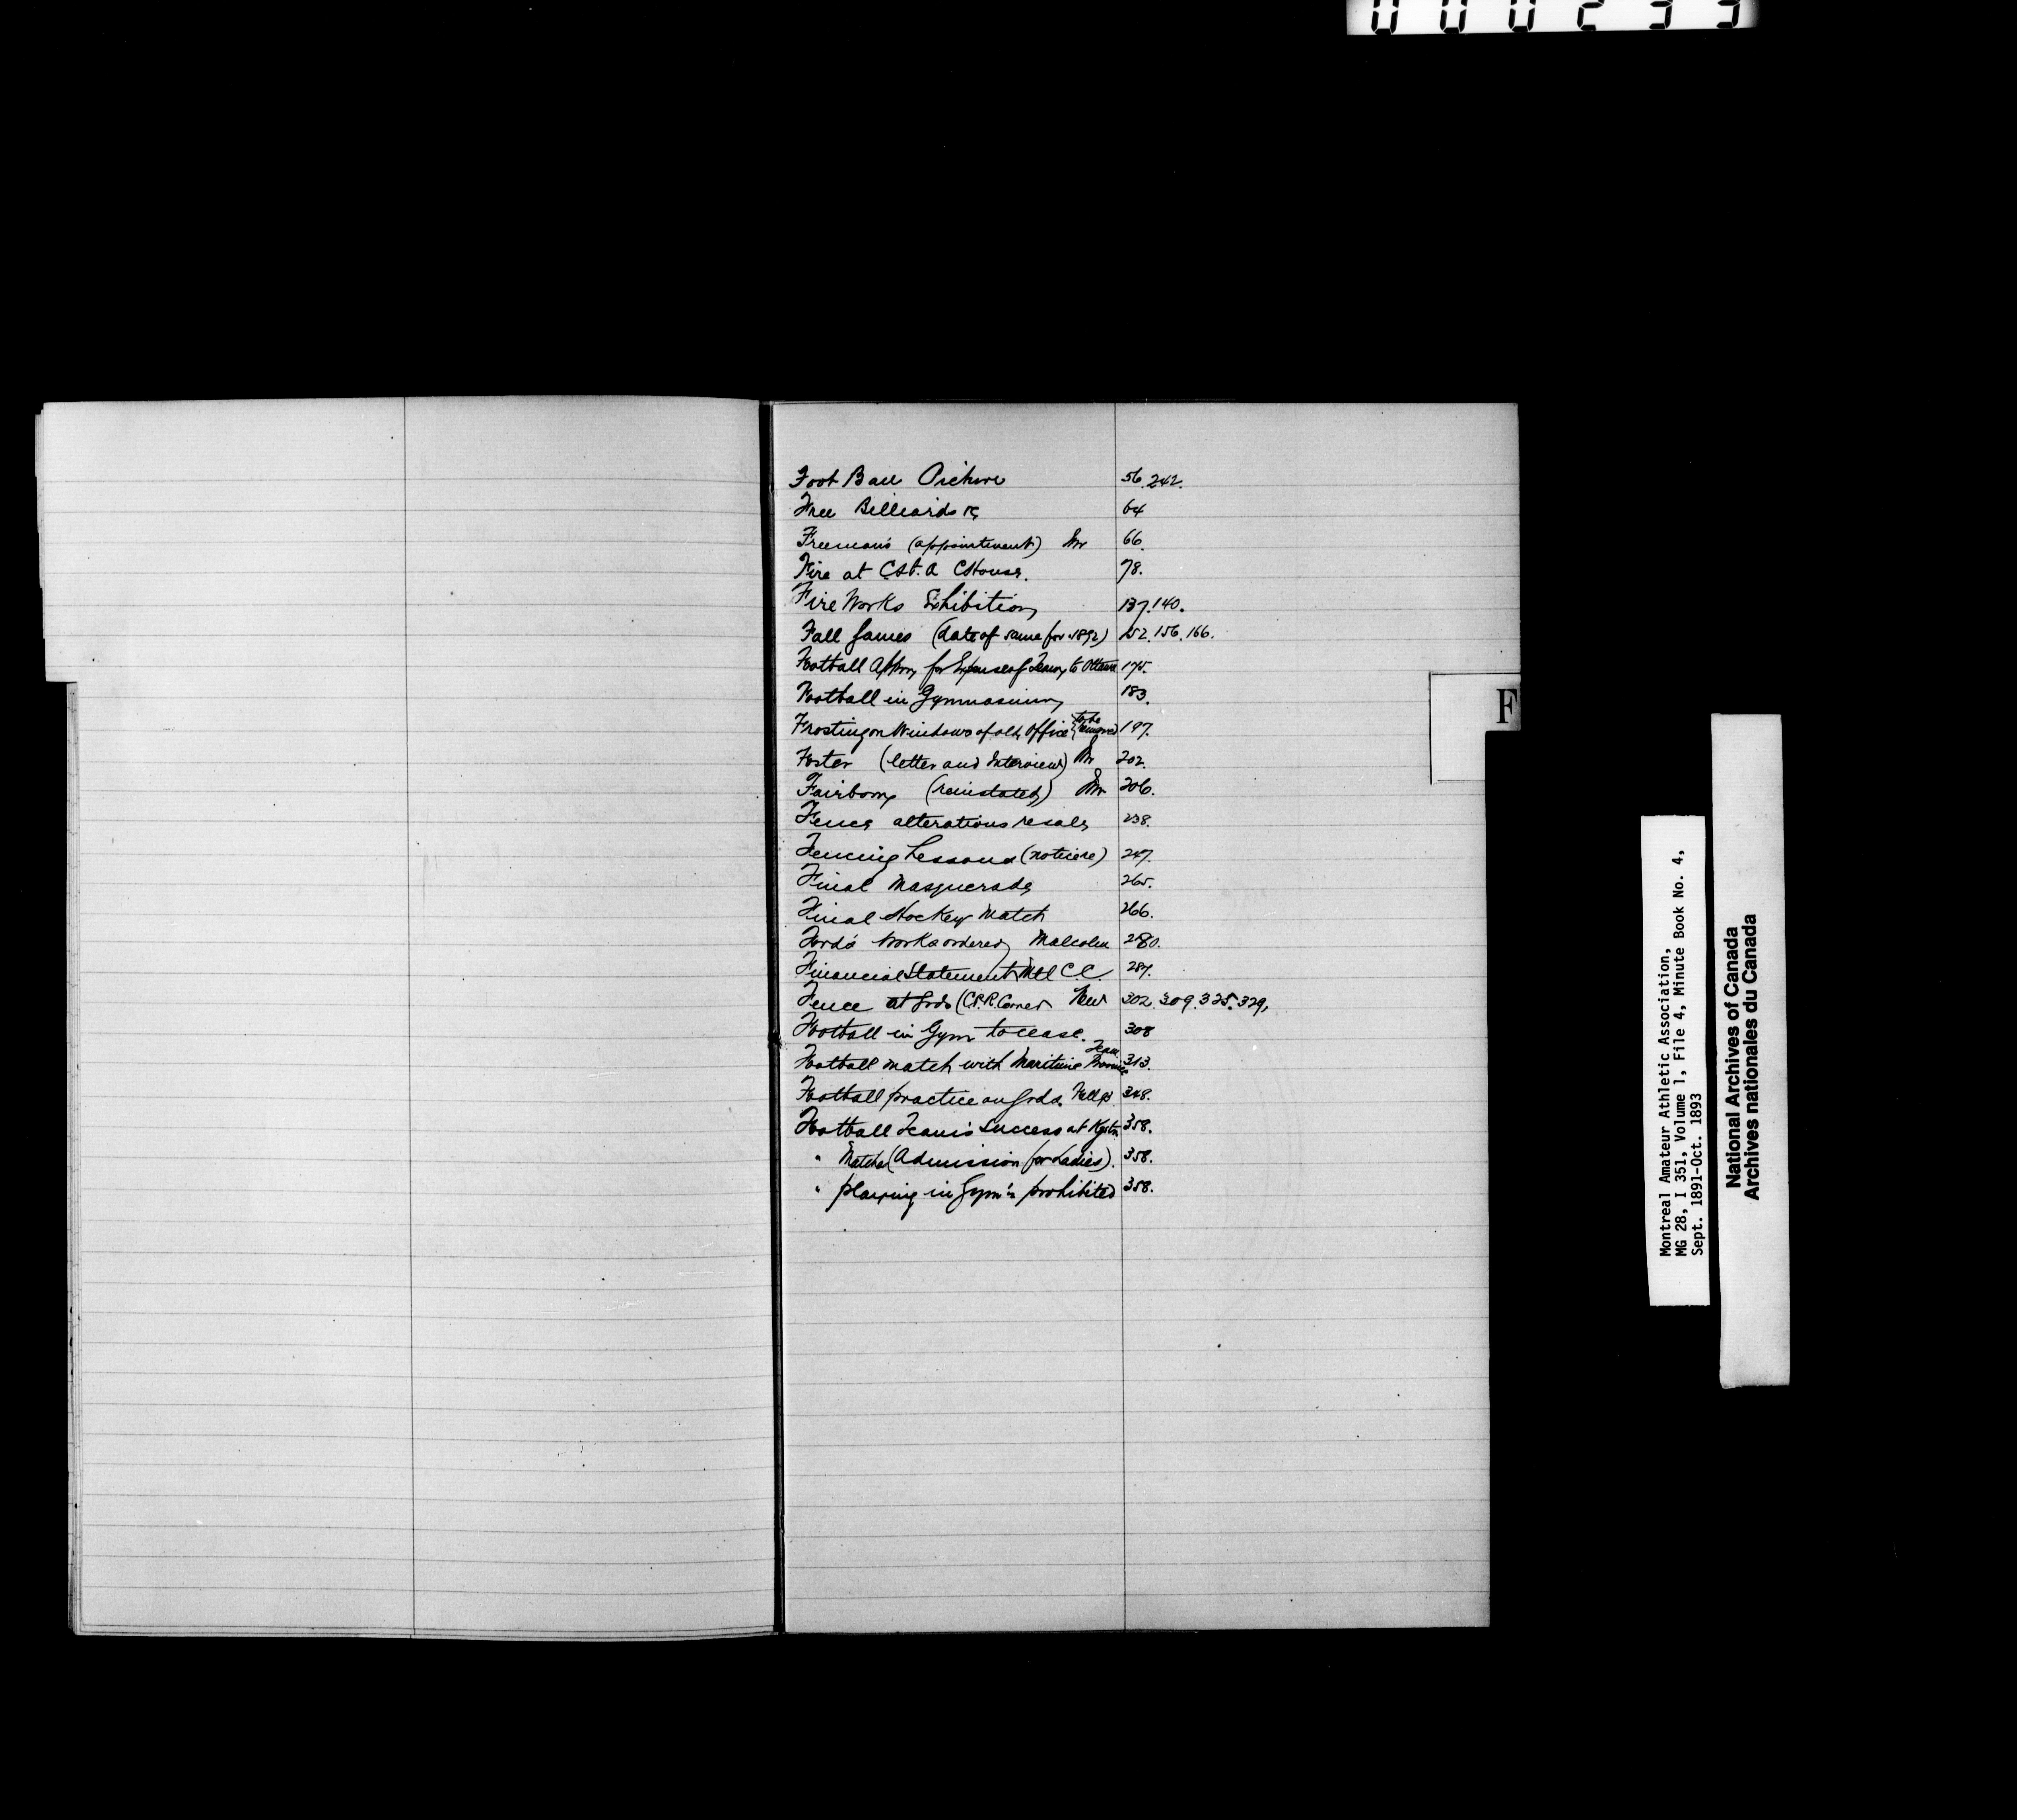 000233
Foot Ball Picture 56. 242.
Free Billiards 64
Freeman's (appointment) Mr 66.
Fire at C. House. 78.
Fire Works Exhibition 137. 140.
Fall Games (date of same for 1892) 152. 156. 166.
Football for Expense of Team to Ottawa 175.
Football in Gymnasium 183.
Frosting on Windows of Office to be removed 197.
Foster (letter and Interview) Mr 202.
Fairbairn (reinstated) Mr 206.
Fence alterations resale 238.
Fencing Lessons (notice re) 247.
Final Masquerade 265.
Final Hockey Match 266.
Ford's works ordered, Malcolm 280.
Financial Statement Mtl C.C. 287.
Fence at Grds (C.P.R. Corner New 302. 309. 325. 329,
Football in Gym to cease. 308
Football match with Maritime Province Team 313.
Football practice on Grds. 348.
Football Team's Success at Kgstn 358.
" Matches (Admission for Ladies). 358.
" playing in Gym'm prohibited 358.
F
Montreal Amateur Athletic Association,
MG 28, I 351, Volume 1, File 4, Minute Book No. 4,
Sept. 1891-Oct. 1893
National Archives of Canada
Archives nationales du Canada